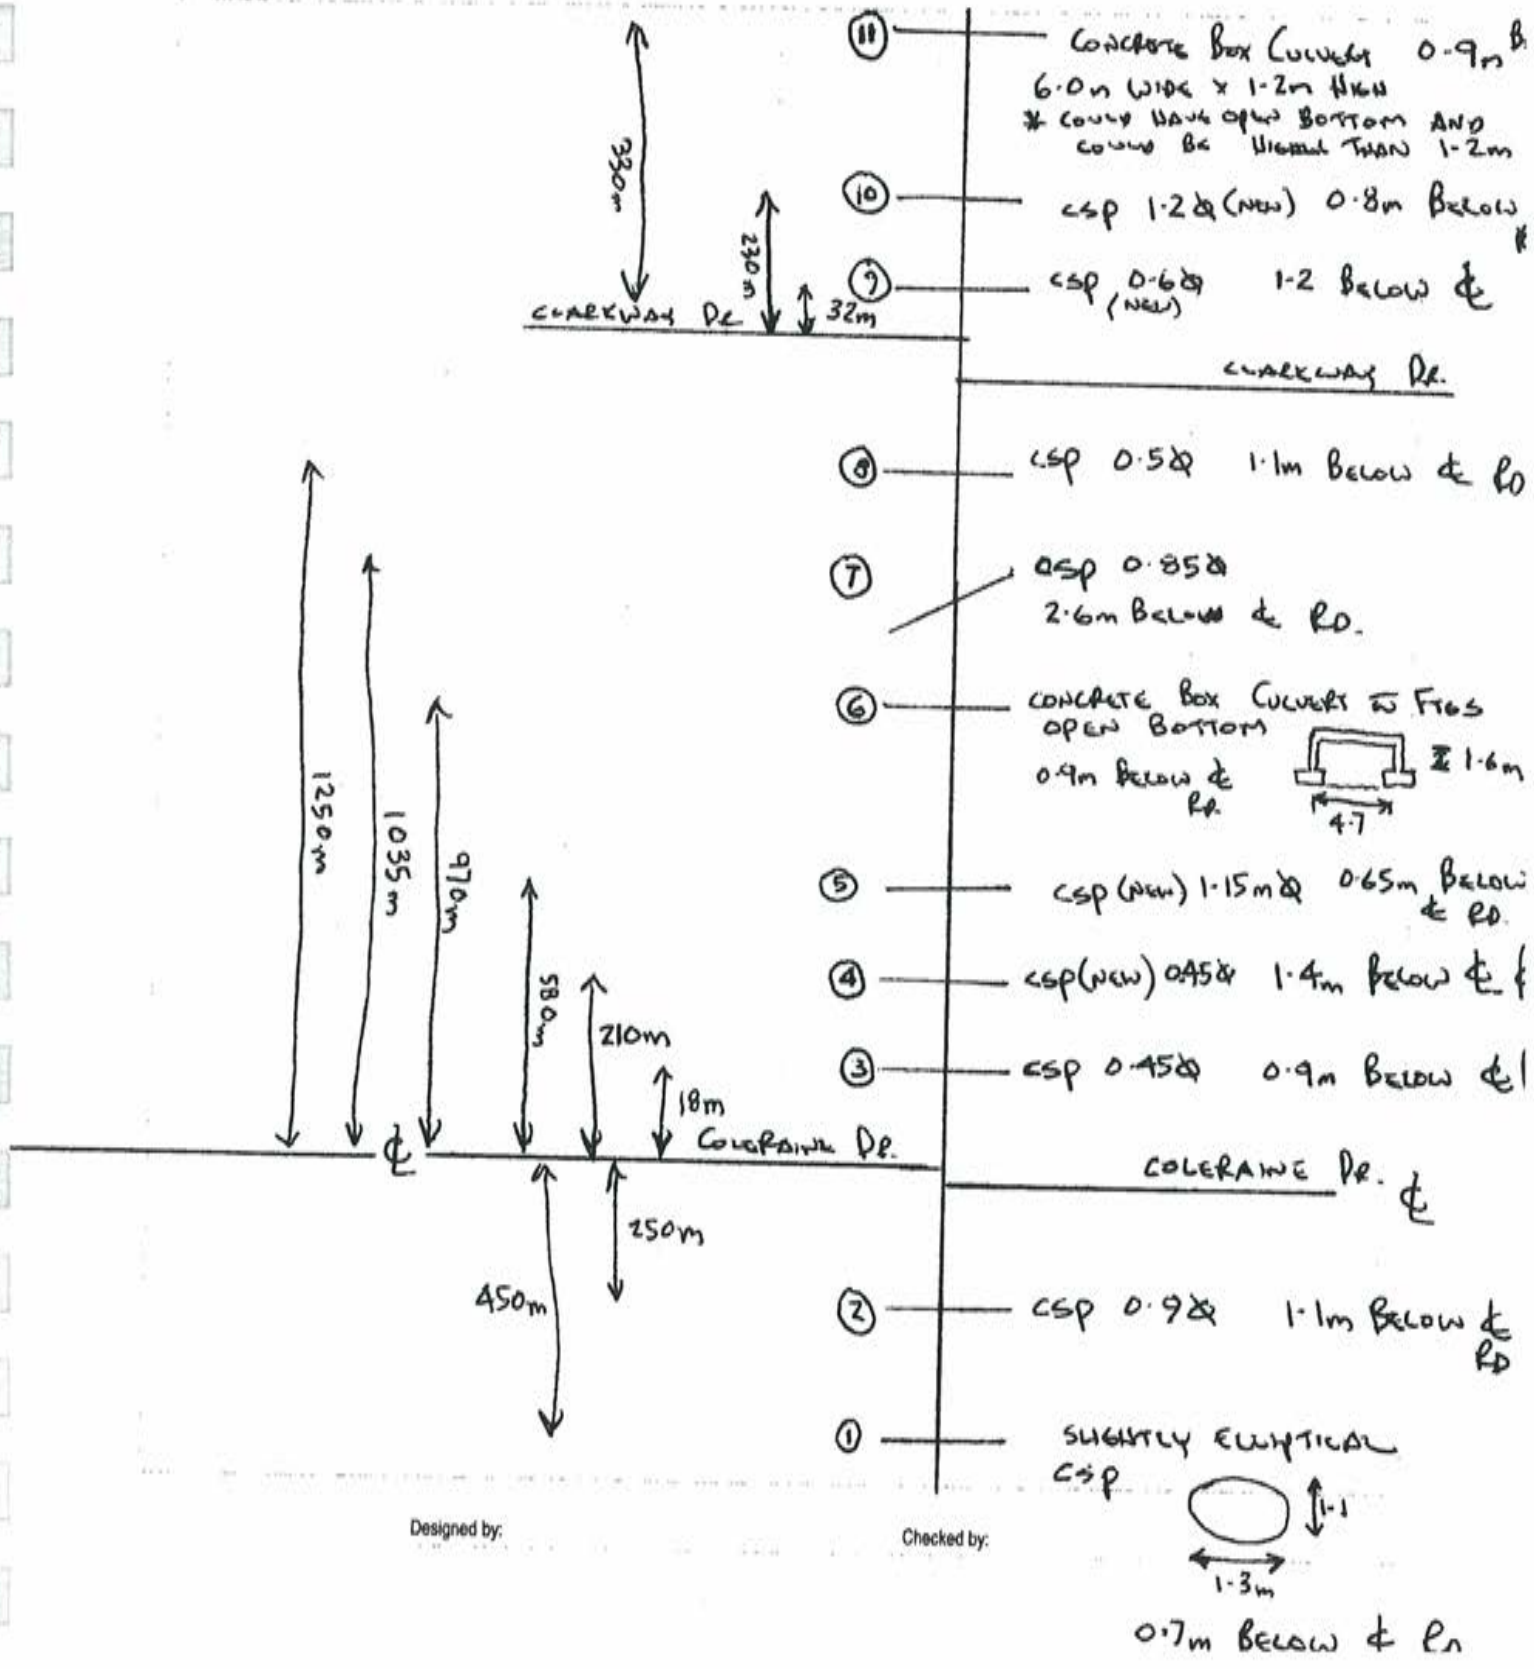 ⑪ CONCRETE BOX CULVERT 0.9m B
6.0m WIDE x 1.2m HIGH
* COULD HAVE OPEN BOTTOM AND
COULD BE HIGHER THAN 1.2m
330m
⑩ CSP 1.2Ø (NEW) 0.8m BELOW
230m
⑨ CSP 0.6Ø 1.2 BELOW ℄
(NEW)
32m
CLARKWAY DR
CLARKWAY DR.
⑧ CSP 0.5Ø 1.1m BELOW ℄ RD
⑦ CSP 0.85Ø
2.6m BELOW ℄ RD.
⑥ CONCRETE BOX CULVERT w FTGS
OPEN BOTTOM
0.9m BELOW ℄
RD.
1.6m
4.7
1250m
1035m
970m
⑤ CSP (NEW) 1.15mØ 0.65m BELOW
℄ RD.
④ CSP (NEW) 0.45Ø 1.4m BELOW ℄
580m
210m
③ CSP 0.45Ø 0.9m BELOW ℄
18m
COLERAINE DR.
℄
COLERAINE DR. ℄
250m
450m
② CSP 0.9Ø 1.1m BELOW ℄
RD
① SLIGHTLY ELLIPTICAL
CSP
1.1
1.3m
0.7m BELOW ℄ RD
Designed by:
Checked by: